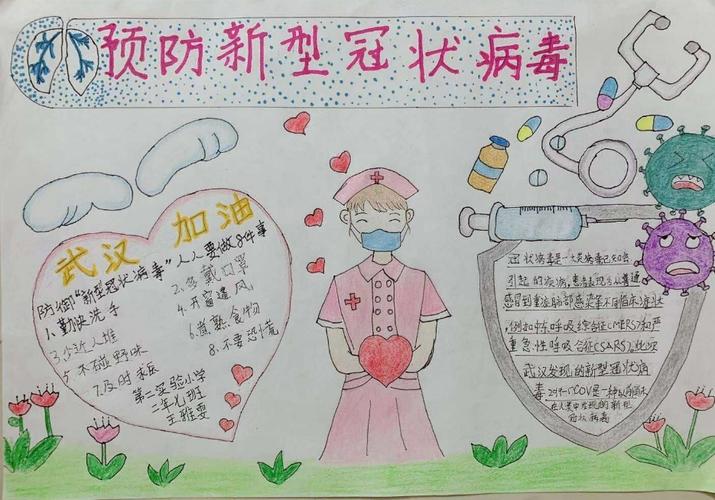 预防新型冠状病毒
武汉 加油
防御“新型冠状病毒”人人要做8件事
1、勤快洗手
2、多戴口罩
3、少近人堆
4、开窗通风
5、不碰野味
6、煮熟食物
7、及时求医
8、不要恐慌
第二实验小学
二年
王雅雯
冠状病毒是一大类病毒已知会
引起的疾病,患者表现为从普通
感冒到重症肺部感染不同临床症状
,例如中东呼吸综合征(MERS)和严
重急性呼吸综合征(SARS)。此次
武汉发现的新型冠状病
毒
是一种以前尚未
在人类中发现的新型
冠状病毒